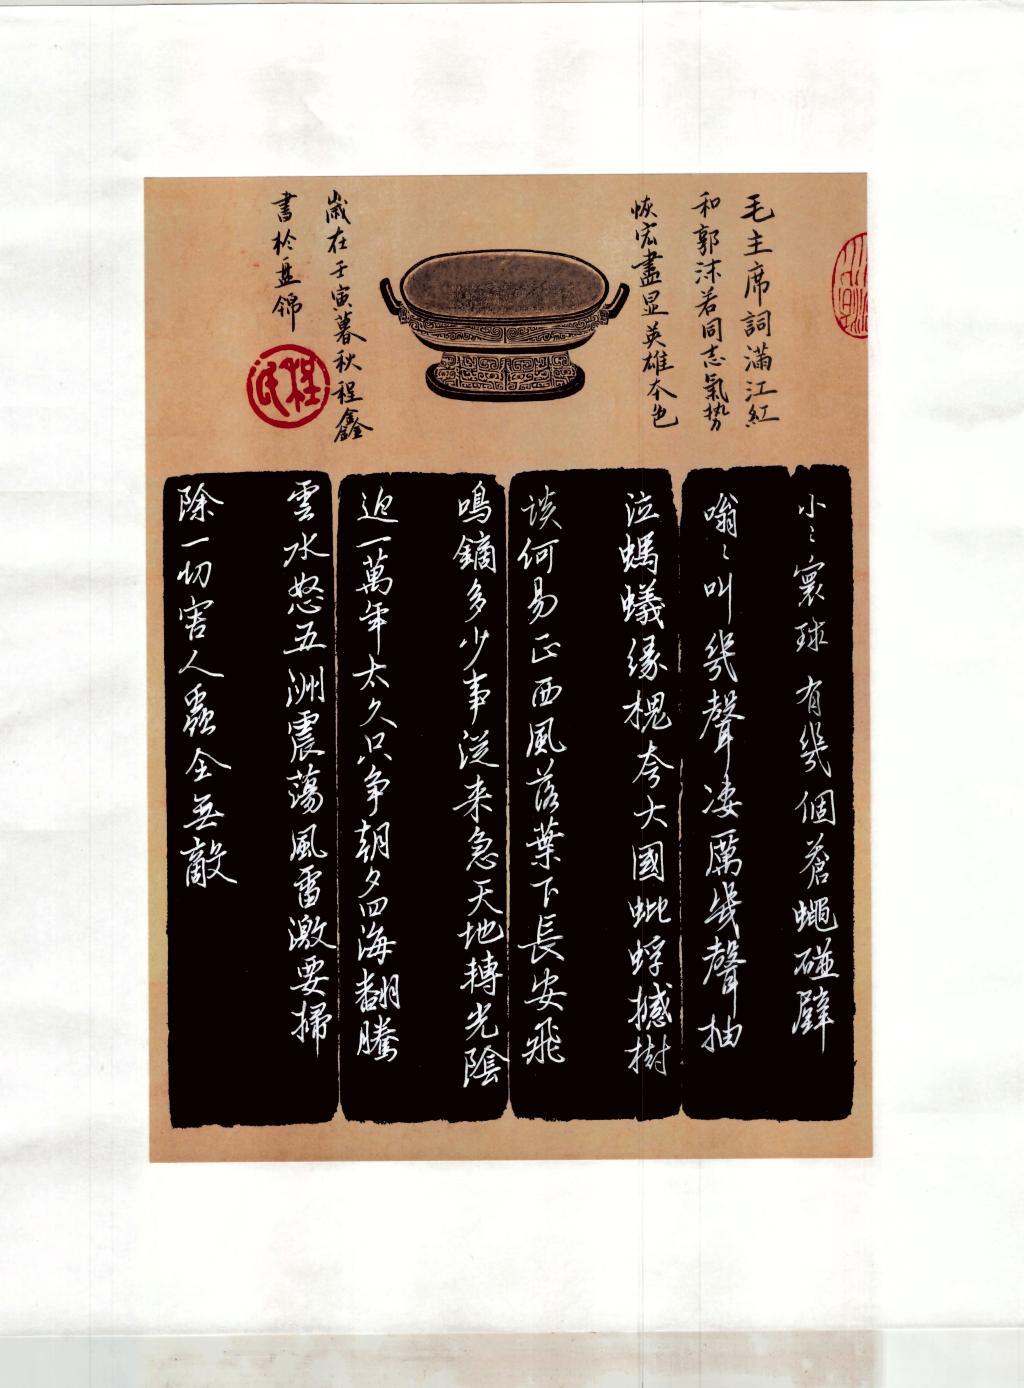 毛主席詞滿江紅
和郭沫若同志氣势
恢宏盡显英雄本色
歲在壬寅暮秋程鑫
書於盘錦
小〻寰球有幾個蒼蠅碰壁
嗡〻叫幾聲凄厲幾聲抽
泣螞蟻緣槐夸大國蚍蜉撼樹
談何易正西風落葉下長安飛
鳴鏑多少事從来急天地轉光陰
迫一萬年太久只争朝夕四海翻騰
雲水怒五洲震蕩風雷激要掃
除一切害人蟲全無敵